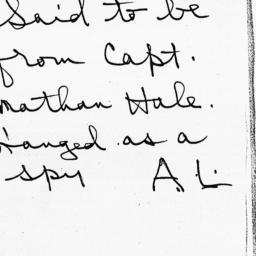 Said to be
from Capt.
nathan Hale.
Hanged as a
spy A.L.